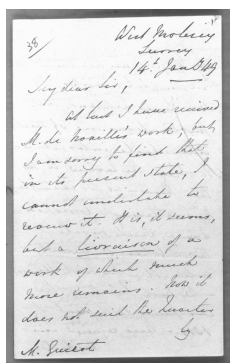 38
West Molesey
Surrey
14th Jan 49
My dear Sir,
at last I have received
M. de Noailles's work, but,
I am sorry to find that
in its present state, I
cannot undertake to
review it. It is, it seems,
but a livraison of a
work of which much
more remains. Now it
does not suit the Quarter
ly
M. Guizot